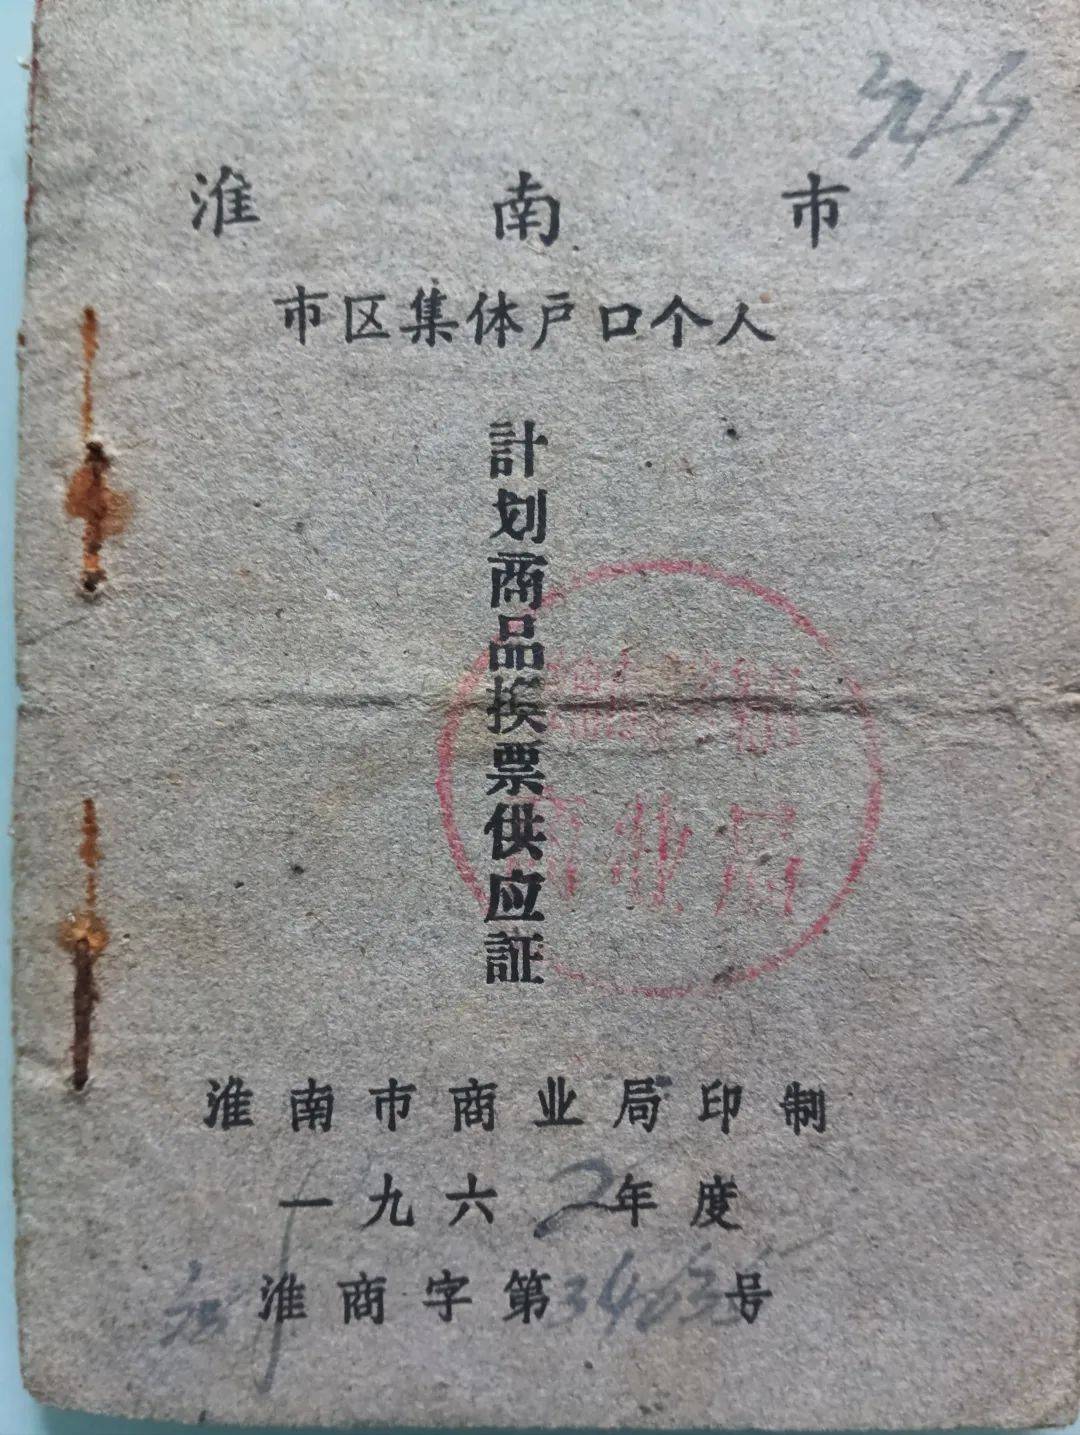 淮南市
市区集体戸口个人
計划商品挨票供应証
商业局
淮南市商业局印制
一九六2年度
淮商字第号